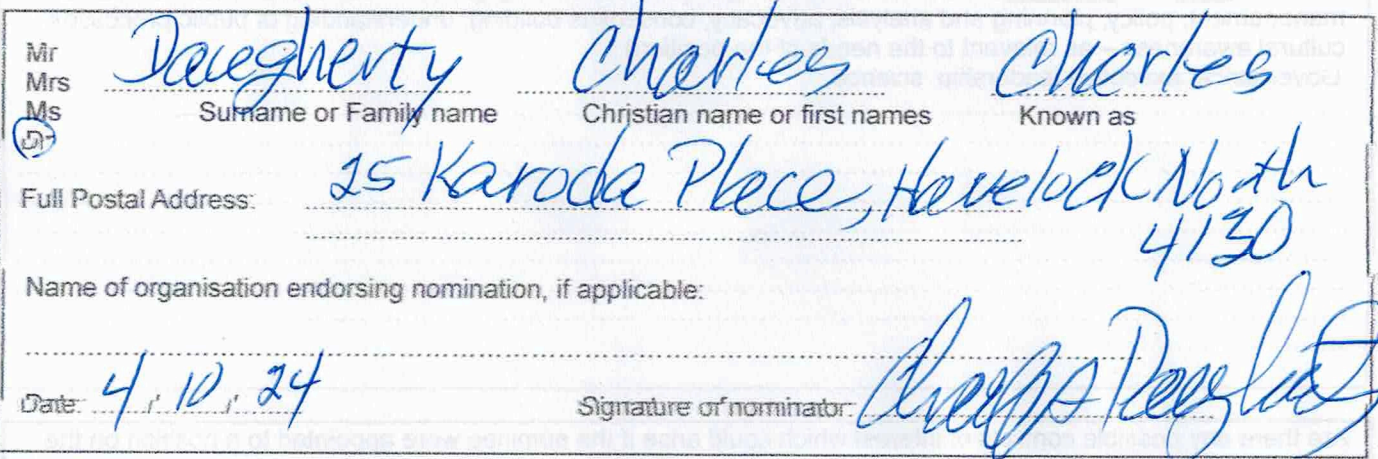 Mr
Mrs
Ms
Dr
Daugherty Charles Charles
Surname or Family name Christian name or first names Known as
Full Postal Address: 25 Karoda Place, Havelock North
4130
Name of organisation endorsing nomination, if applicable:
Date: 4 / 10 / 24 Signature of nominator: Charles Daugherty